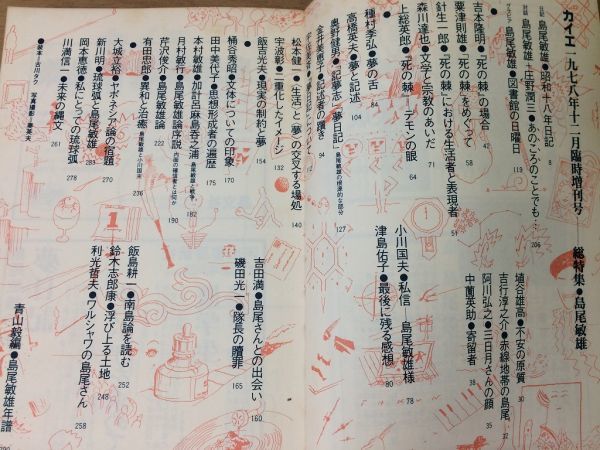 カイエ 一九七八年十二月臨時増刊号 総特集●島尾敏雄
日記 島尾敏雄●昭和十八年日記 8
対談 島尾敏雄・庄野潤三●あのころのことでも… 206
グラビア 島尾敏雄●図書館の日曜日 119
埴谷雄高●不安の原質 30
吉行淳之介●赤線地帯の島尾 32
阿川弘之●三日月さんの顔 35
中薗英助●寄留者 38
吉本隆明●『死の棘』の場合 42
粟津則雄●『死の棘』をめぐって 51
針生一郎●『死の棘』における生活者と表現者 58
森川達也●文学と宗教のあいだ 71
上総英郎●『死の棘』―デモンの眼 64
小川国夫●私信―島尾敏雄様 78
津島佑子●最後に残る感想 80
種村季弘●夢の舌 84
高橋英夫●夢と記述
奥野健男●『記夢志』『夢日記』
金井美恵子●記述者の躓き
島尾敏雄の根源的な部分 127
松本健一●〈生活〉と〈夢〉の交叉する場処 140
宇波彰●二重化したイメージ 132
飯吉光夫●現実の制約と夢 154
吉田満●島尾さんとの出会い 160
磯田光一●隊長の贖罪 165
桶谷秀昭●文体についての印象 170
田中美代子●思想形成者の遍歴 175
本村敏雄●加計呂麻島呑之浦 島尾敏雄と戦争 182
月村敏行●島尾敏雄論序説 内面の確信者とは何か 190
芹沢俊介●島尾敏雄論 222
有田忠郎●異和と治癒 島尾敏雄と小川国夫 236
飯島耕一●南島論を読む 252
鈴木志郎康●浮び上る土地 248
利光哲夫●ワルシャワの島尾さん 258
大城立裕●ヤポネシア論の宿題 270
新川明●琉球弧と島尾敏雄 283
岡本恵徳●私にとっての琉球弧 278
川満信一●未来の縄文 261
青山毅編●島尾敏雄年譜 290
●装本=古川タク